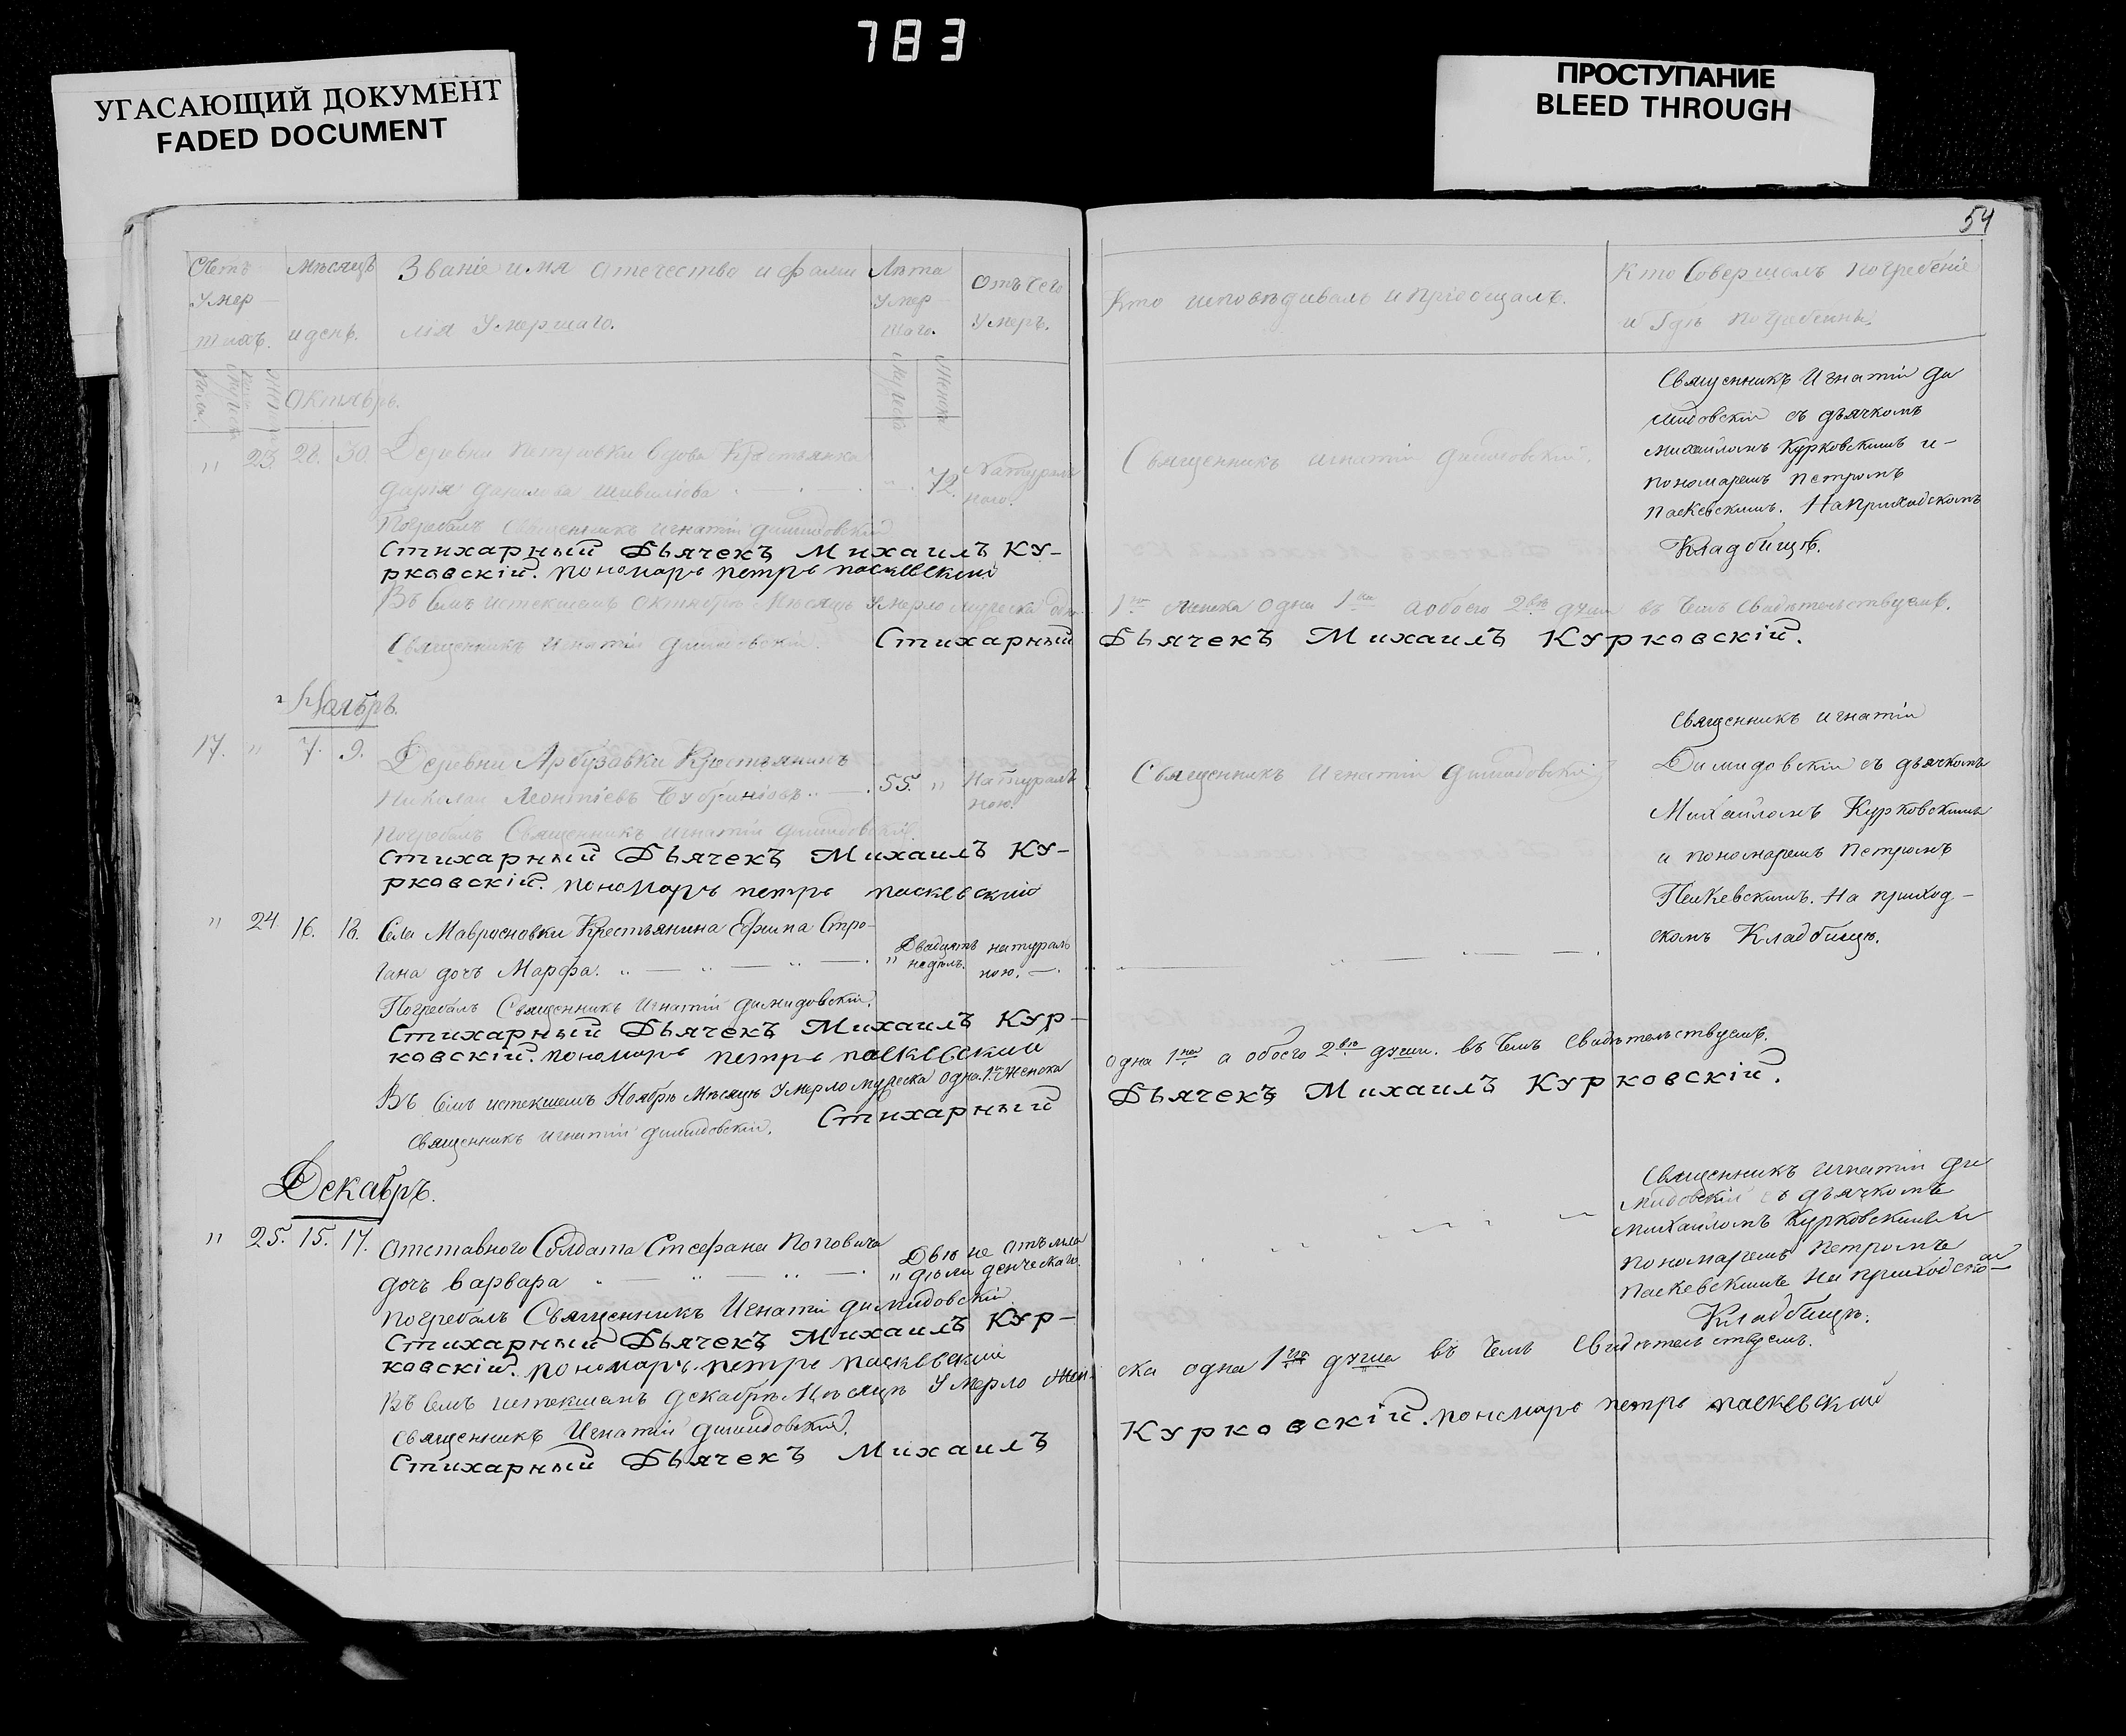 783
УГАСАЮЩИЙ ДОКУМЕНТ
FADED DOCUMENT
ПРОСТУПАНИЕ
BLEED THROUGH
54
Счетъ
Умер
шихъ.
Мѣсяцъ
и день.
Званіе имя отечество и фами
лія Умершаго.
Лѣта
Умер
шаго.
Отъ чего
Умеръ.
Кто исповѣдывалъ и пріобщалъ.
Кто Совершалъ погребеніе
и Гдѣ погребенны.
Октябрь.
" 23. 28. 30. Деревни Петровки вдова Крестьянка
Дарья Данилова
72.
Натураль
ною.
Священникъ Игнатій Димидовскій.
Священникъ Игнатій Ди
мидовскій съ дьячкомъ
Михайломъ Курковскимъ и-
пономаремъ Петромъ
Паскевскимъ. На приходскомъ
Кладбищѣ.
Погребалъ Священникъ Игнатій Димидовскій
Стихарный Дьячекъ Михаилъ Ку-
рковскій. пономарь петръ паскевский
Въ семъ истекшемъ Октябрѣ Мѣсяцѣ Умерло мужеска одна
1 женска одна 1 а обоего 2 души въ чемъ Свидѣтельствуемъ.
Священникъ Игнатій Димидовскій. Стихарный
Дьячекъ Михаилъ Курковскій.
Ноябрь.
17. " 7. 9. Деревни Арбузовки Крестьянинъ
Николай Леонтіевъ
55. "
Натураль
ною.
Священникъ Игнатій Димидовскій
Священникъ Игнатій
Димидовскій съ дьячкомъ
Михайломъ Курковскимъ
и пономаремъ Петромъ
Паскевскимъ. На приход-
скомъ Кладбищѣ.
Погребалъ Священникъ Игнатій Димидовскій
Стихарный Дьячекъ Михаилъ Ку-
рковскій. пономарь петръ паскевский
" 24 16. 18. Села Крестьянина Ефима Стро-
гана дочь Марфа.
Двадцать
" недѣль.
натураль
ною.
Погребалъ Священникъ Игнатій Димидовскій.
Стихарный Дьячекъ Михаилъ Кур-
ковскій. пономарь петръ паскевский
Въ семъ истекшемъ Ноябрѣ Мѣсяцѣ Умерло мужеска одна 1 Женска
одна 1 а обоего 2 души. въ чемъ Свидѣтельствуемъ.
Священникъ Игнатій Димидовскій. Стихарный
Дьячекъ Михаилъ Курковскій.
Декабрь.
" 25. 15. 17. Отставного Солдата Стефана Поповича
дочь Варвара
Двѣ не
" дѣли
Отъ
Священникъ Игнатій Ди
мидовскій съ дьячкомъ
Михайломъ Курковскимъ и
пономаремъ Петромъ
Паскевскимъ На приходско
Кладбищѣ.
Погребалъ Священникъ Игнатій Димидовскій
Стихарный Дьячекъ Михаилъ Кур-
ковскій. пономарь петръ паскевский
Въ семъ истекшемъ Декабрѣ Мѣсяцѣ Умерло Жен
ска одна 1 душа въ чемъ Свидѣтельствуемъ.
Священникъ Игнатій Димидовскій.
Стихарный Дьячекъ Михаилъ
Курковскій. пономарь петръ паскевский